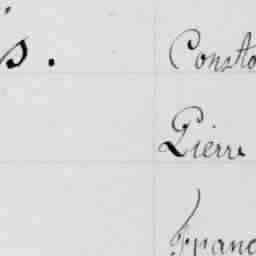 s. Consta
Pierre
Franc